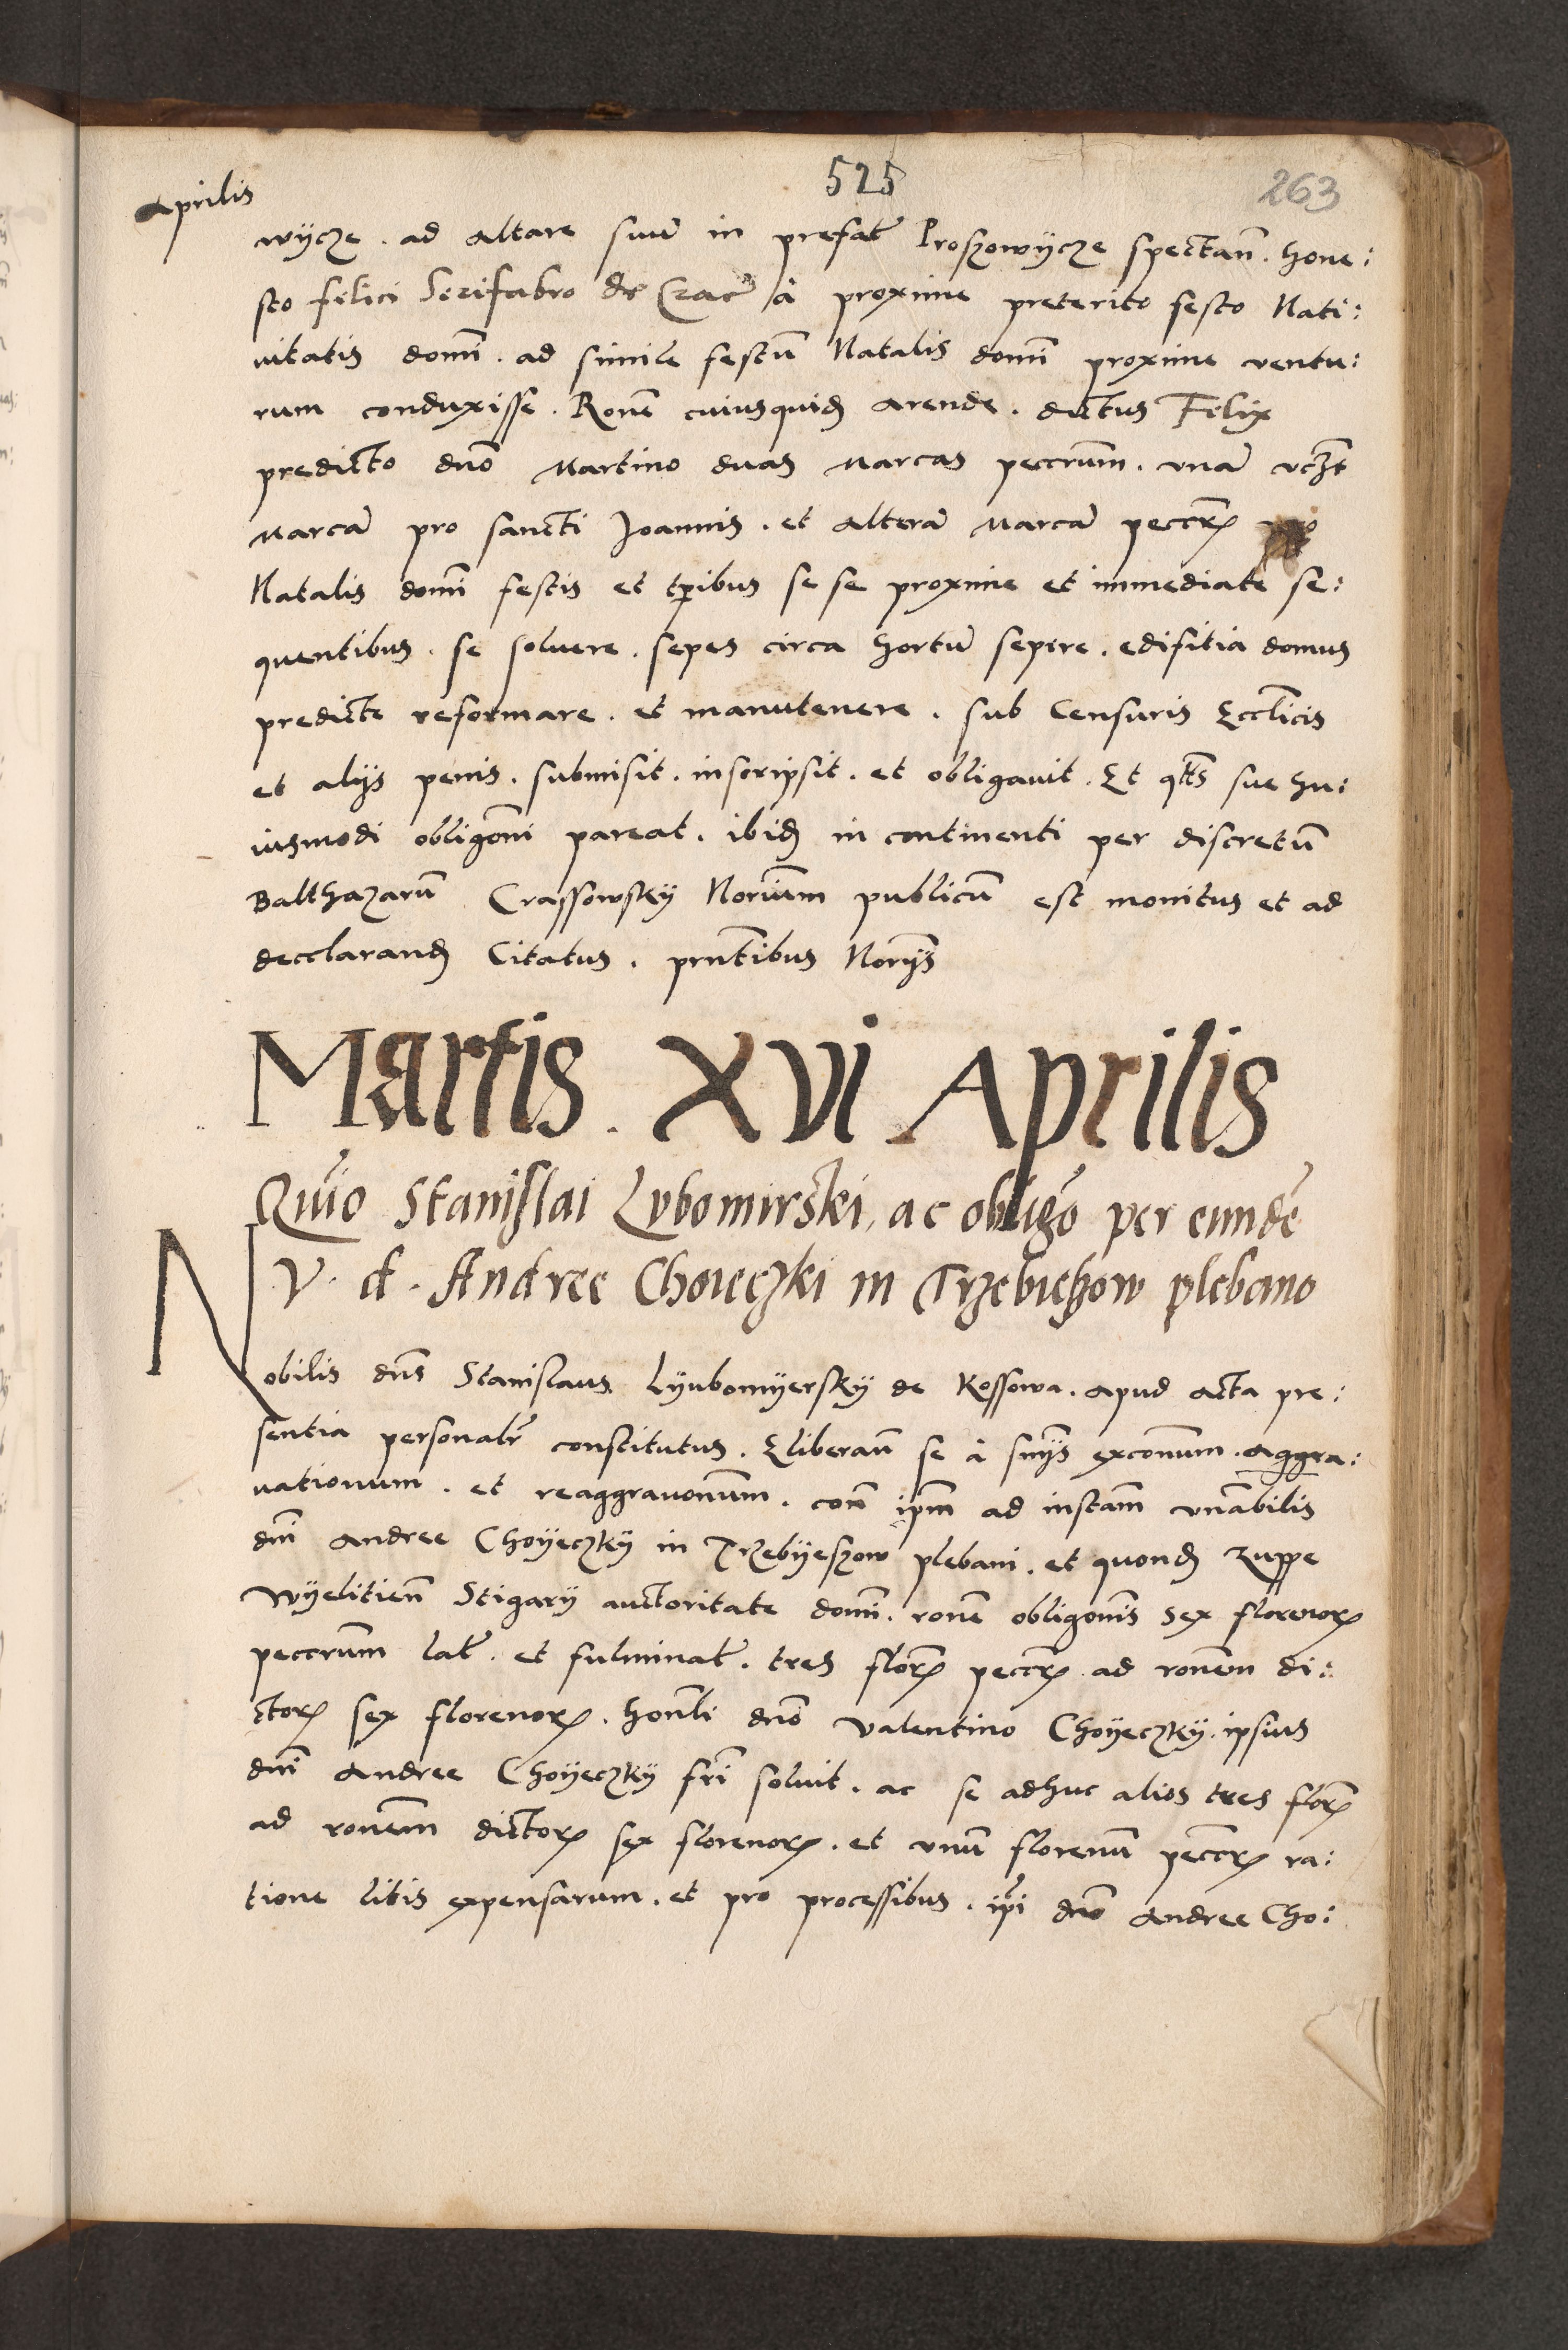 525
263
Aprilis
wycze . ad altare suu͂ in prefat͂ Proszowycze spectan͂ . hone:
sto felici Serifabro de Crac͂ à proxime preterito festo Nati:
uitatis domi͂ . ad simile festu͂ Natalis domi͂ proxime ventu:
rum conduxisse . Rone͂ cuiusquid͂ arende . dictus Felix
predicto dno͂ Martino duas Marcas peccrum͂ . vna͂ vcꝫt
Marca͂ pro sancti Joannis . et altera͂ Marca͂ peccrꝝ pro
Natalis domi͂ festis et tp͂ibus se se proxime et immediate se:
quentibus . se soluere . sepes circa hortu͂ sepire . edifitia domus
predicte reformare . et manutenere . sub Censuris Eccl͂icis
et alijs penis . submisit . inscripsit . et obligauit . Et qt͂s sue hu:
iusmodi obligoni͂ pareat . ibid͂ in continenti per discretu͂
Balthazaru͂ Crassowsky Norium͂ publicu͂ est monitus et ad
decclarand͂ Citatus . prnt͂ibus Norijs͂
Martis . XVI Aprilis
Quio͂ Stanislai Lubomirski, ac obligo͂ per eunde͂
V . d . Andree Choieczki in Trzebieszow plebano
Nobilis dns͂ Stanislaus Lyubomyersky de Kossowa . apud acta pre:
sentia personalr͂ constitutus . Eliberan͂ se à snijs͂ exconum͂ . aggra:
uationum . et reaggrauonum͂ . con͂ ipm͂ ad instam͂ vna͂bilis
dni͂ Andree Choyeczky in Trzebyeszow plebani . et quond͂ zuppe
Wyelitien͂ Stigarij auctoritate domi͂ . rone͂ obligonis͂ sex florenorꝝ
peccrum͂ lat͂ . et fulminat͂ . tres florꝝ peccrꝝ ad ronem͂ di:
ctorꝝ sex florenorꝝ . honli͂ dno͂ Valentino Choyeczky . ipsius
dni͂ Andree Choyeczky fri͂ soluit . ac se adhuc alios tres florꝝ
ad ronem͂ dictorꝝ sex florenorꝝ . et vnu͂ florenu͂ peccrꝝ ra:
tione litis expensarum . et pro processibus . ipi͂ dno͂ Andree Cho: